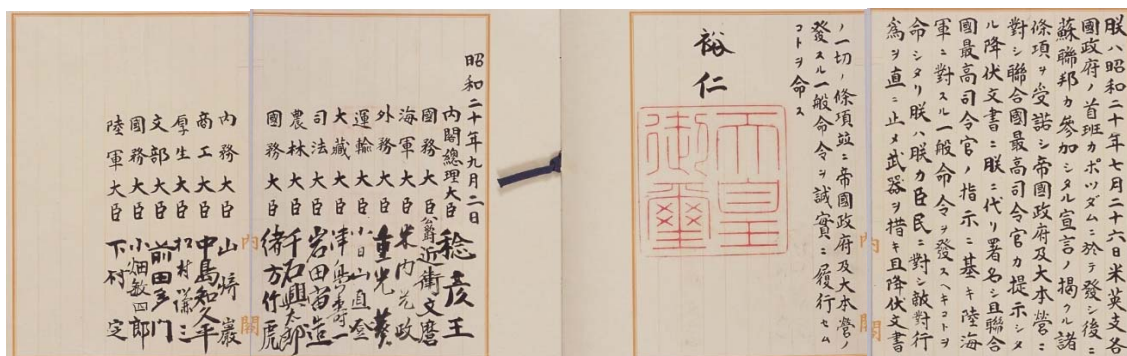 朕ハ昭和二十年七月二十六日米英支各
國政府ノ首班カポツダムニ於テ發シ後ニ
蘇聯邦カ參加シタル宣言ノ掲クル諸
條項ヲ受諾シ帝國政府及大本營ニ
對シ聯合國最高司令官カ提示シタ
ル降伏文書ニ朕ニ代リ署名シ且聯合
國最高司令官ノ指示ニ基キ陸海
軍ニ對スル一般命令ヲ發スヘキコトヲ
命シタリ朕ハ朕カ臣民ニ對シ敵對行
爲ヲ直ニ止メ武器ヲ措キ且降伏文書
ノ一切ノ條項竝ニ帝國政府及大本營ノ
發スル一般命令ヲ誠實ニ履行セム
コトヲ命ス
裕仁
天皇
御璽
內閣
昭和二十年九月二日
內閣總理大臣 稔彦王
國務大臣 公爵近衛文麿
海軍大臣 米內光政
外務大臣 重光葵
運輸大臣 小日山直登
大藏大臣 津島壽一
司法大臣 岩田宙造
農林大臣 千石興太郎
國務大臣 緒方竹虎
內閣
內務大臣 山崎巖
商工大臣 中島知久平
厚生大臣 松村謙三
文部大臣 前田多門
國務大臣 小畑敏四郎
陸軍大臣 下村定